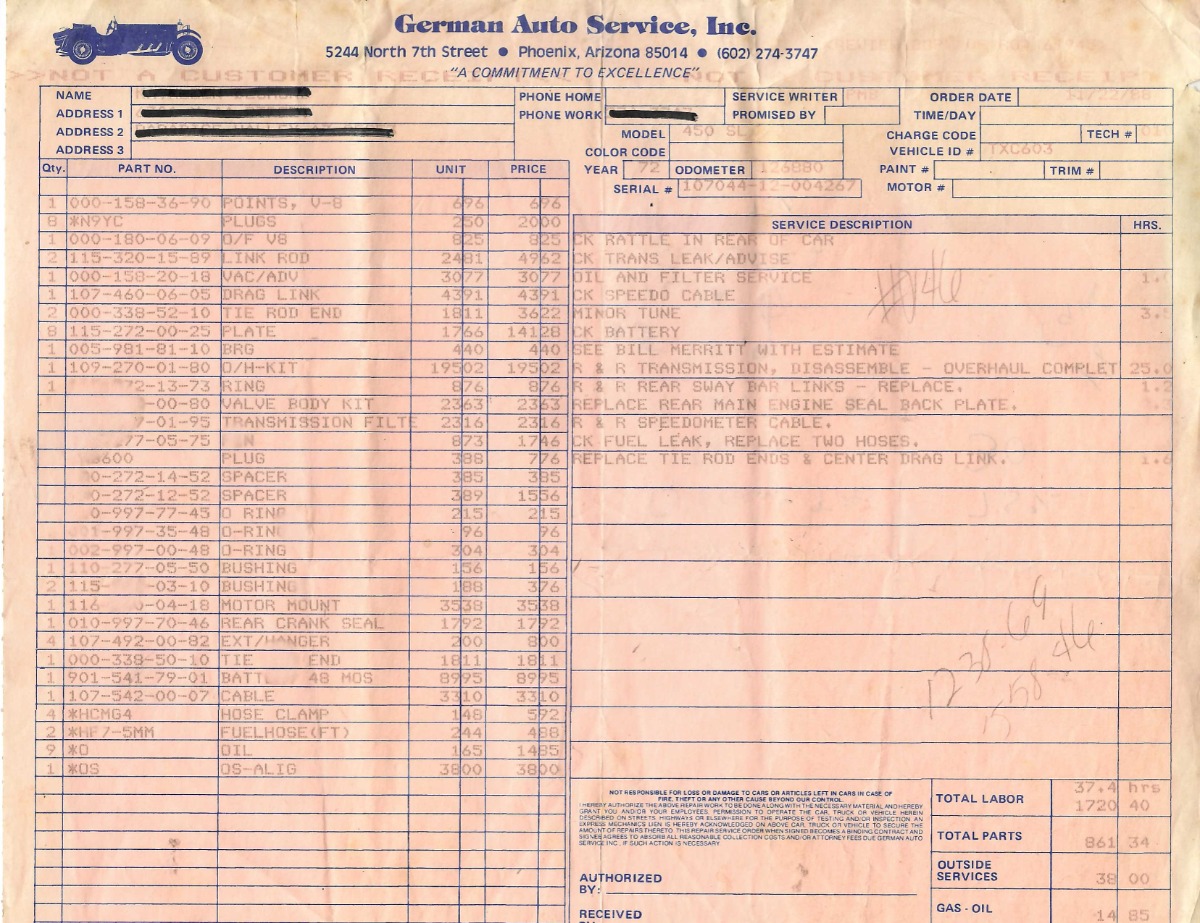 German Auto Service, Inc.
5244 North 7th Street • Phoenix, Arizona 85014 • (602) 274-3747
>>NOT A CUSTOMER RECEI NOT CUSTOMER RECEIP
"A COMMITMENT TO EXCELLENCE"
NAME PHONE HOME SERVICE WRITER PMB ORDER DATE
ADDRESS 1 PHONE WORK PROMISED BY TIME/DAY
ADDRESS 2 MODEL 450 SL CHARGE CODE TECH #
ADDRESS 3 COLOR CODE VEHICLE ID # TXC603
YEAR 72 ODOMETER 126880 PAINT # TRIM #
SERIAL # 107044-12-004267 MOTOR #
Qty. PART NO. DESCRIPTION UNIT PRICE
1 000-158-36-90 POINTS, V-8 696 696
8 *N9YC PLUGS 250 2000
1 000-180-06-09 O/F V8 825 825
2 115-320-15-89 LINK ROD 2481 4962
1 000-158-20-18 VAC/ADV 3077 3077
1 107-460-06-05 DRAG LINK 4391 4391
2 000-338-52-10 TIE ROD END 1811 3622
8 115-272-00-25 PLATE 1766 14128
1 005-981-81-10 BRG 440 440
1 109-270-01-80 O/H-KIT 19502 19502
1 72-13-73 RING 876 876
-00-80 VALVE BODY KIT 2363 2363
7-01-95 TRANSMISSION FILTE 2316 2316
77-05-75 873 1746
3600 PLUG 388 776
0-272-14-52 SPACER 385 385
0-272-12-52 SPACER 389 1556
0-997-77-45 O RING 215 215
-997-35-48 O-RING 96 96
002-997-00-48 O-RING 304 304
1 110-277-05-50 BUSHING 156 156
2 115- -03-10 BUSHING 188 376
1 116 -04-18 MOTOR MOUNT 3538 3538
1 010-997-70-46 REAR CRANK SEAL 1792 1792
4 107-492-00-82 EXT/HANGER 200 800
1 000-338-50-10 TIE END 1811 1811
1 901-541-79-01 BATT 48 MOS 8995 8995
1 107-542-00-07 CABLE 3310 3310
4 *HCMG4 HOSE CLAMP 148 592
2 *HF7-5MM FUELHOSE(FT) 244 488
9 *O OIL 165 1485
1 *OS OS-ALIG 3800 3800
SERVICE DESCRIPTION HRS.
CK RATTLE IN REAR OF CAR
CK TRANS LEAK/ADVISE
OIL AND FILTER SERVICE 1.
CK SPEEDO CABLE
MINOR TUNE 3.
CK BATTERY
SEE BILL MERRITT WITH ESTIMATE
R & R TRANSMISSION, DISASSEMBLE - OVERHAUL COMPLET 25.0
R & R REAR SWAY BAR LINKS - REPLACE. 1.2
REPLACE REAR MAIN ENGINE SEAL BACK PLATE.
R & R SPEEDOMETER CABLE.
CK FUEL LEAK, REPLACE TWO HOSES.
REPLACE TIE ROD ENDS & CENTER DRAG LINK. 1.6
NOT RESPONSIBLE FOR LOSS OR DAMAGE TO CARS OR ARTICLES LEFT IN CARS IN CASE OF
FIRE, THEFT OR ANY OTHER CAUSE BEYOND OUR CONTROL.
I HEREBY AUTHORIZE THE ABOVE REPAIR WORK TO BE DONE ALONG WITH THE NECESSARY MATERIAL AND HEREBY
GRANT YOU AND/OR YOUR EMPLOYEES, PERMISSION TO OPERATE THE CAR, TRUCK OR VEHICLE HEREIN
DESCRIBED ON STREETS, HIGHWAYS OR ELSEWHERE FOR THE PURPOSE OF TESTING AND/OR INSPECTION. AN
EXPRESS MECHANICS LIEN IS HEREBY ACKNOWLEDGED ON ABOVE CAR, TRUCK OR VEHICLE TO SECURE THE
AMOUNT OF REPAIRS THERETO. THIS REPAIR SERVICE ORDER WHEN SIGNED BECOMES A BINDING CONTRACT AND
SIGNEE AGREES TO ABSORB ALL REASONABLE COLLECTION COSTS AND/OR ATTORNEY FEES DUE GERMAN AUTO
SERVICE INC. IF SUCH ACTION IS NECESSARY
AUTHORIZED
BY:
RECEIVED
TOTAL LABOR 37.4 hrs
1720 40
TOTAL PARTS 861 34
OUTSIDE
SERVICES 38 00
GAS - OIL 14 85